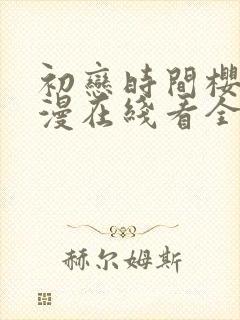 初戀時間櫻
漫在綫看全
赫尔姆斯